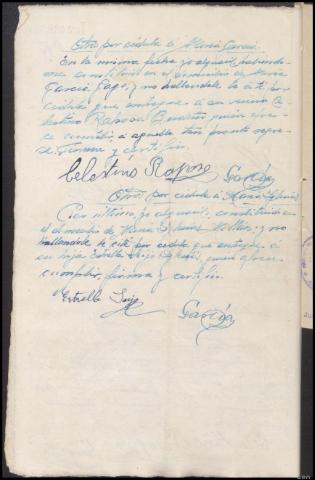 Otra por cédula á María García.
En la misma fecha yo alguacil habiendo-
me constituido en el domicilio de María
García Lago, y no hallandola la cité por
cédula que entregué á su vecino Ce-
lestino Raposo quien ofre-
ce á aquella tan pronto regre-
se. Firma y certifico.
Celestino Raposo García
Otra por cédula á María Iglesias
Por último, yo alguacil, constituido en
el domicilio de María Iglesias y no
hallandola la cité por cédula que entregué á
su hija Estrella quien ofrece
cumplir, firma y certifico.
Estrella
García